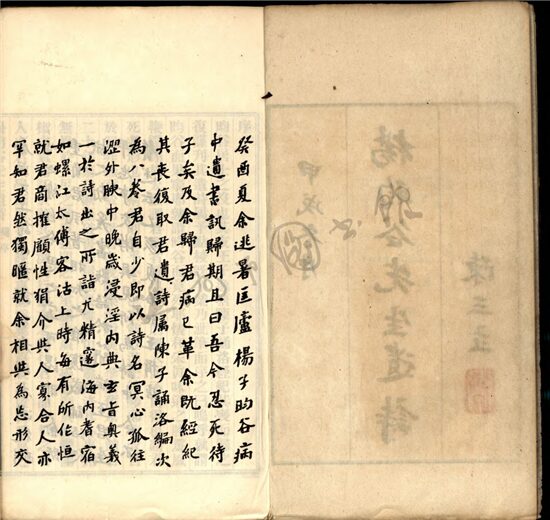 陳三立
楊昀谷先生遺詩
癸酉夏余避暑匡廬楊子昀谷病
中遺書訊歸期且曰吾今忍死待
子矣及余歸君病已革余既經紀
其喪復取君遺詩屬陳子誦洛編次
為八卷君自少即以詩名冥心孤往
澀外腴中晚歲浸淫內典玄旨奧義
一於詩出之所詣尤精邃海內耆宿
如螺江太傅客沽上時每有所作恒
就君商搉顧性狷介與人寡合人亦
罕知君然獨暱就余相與為忘形交